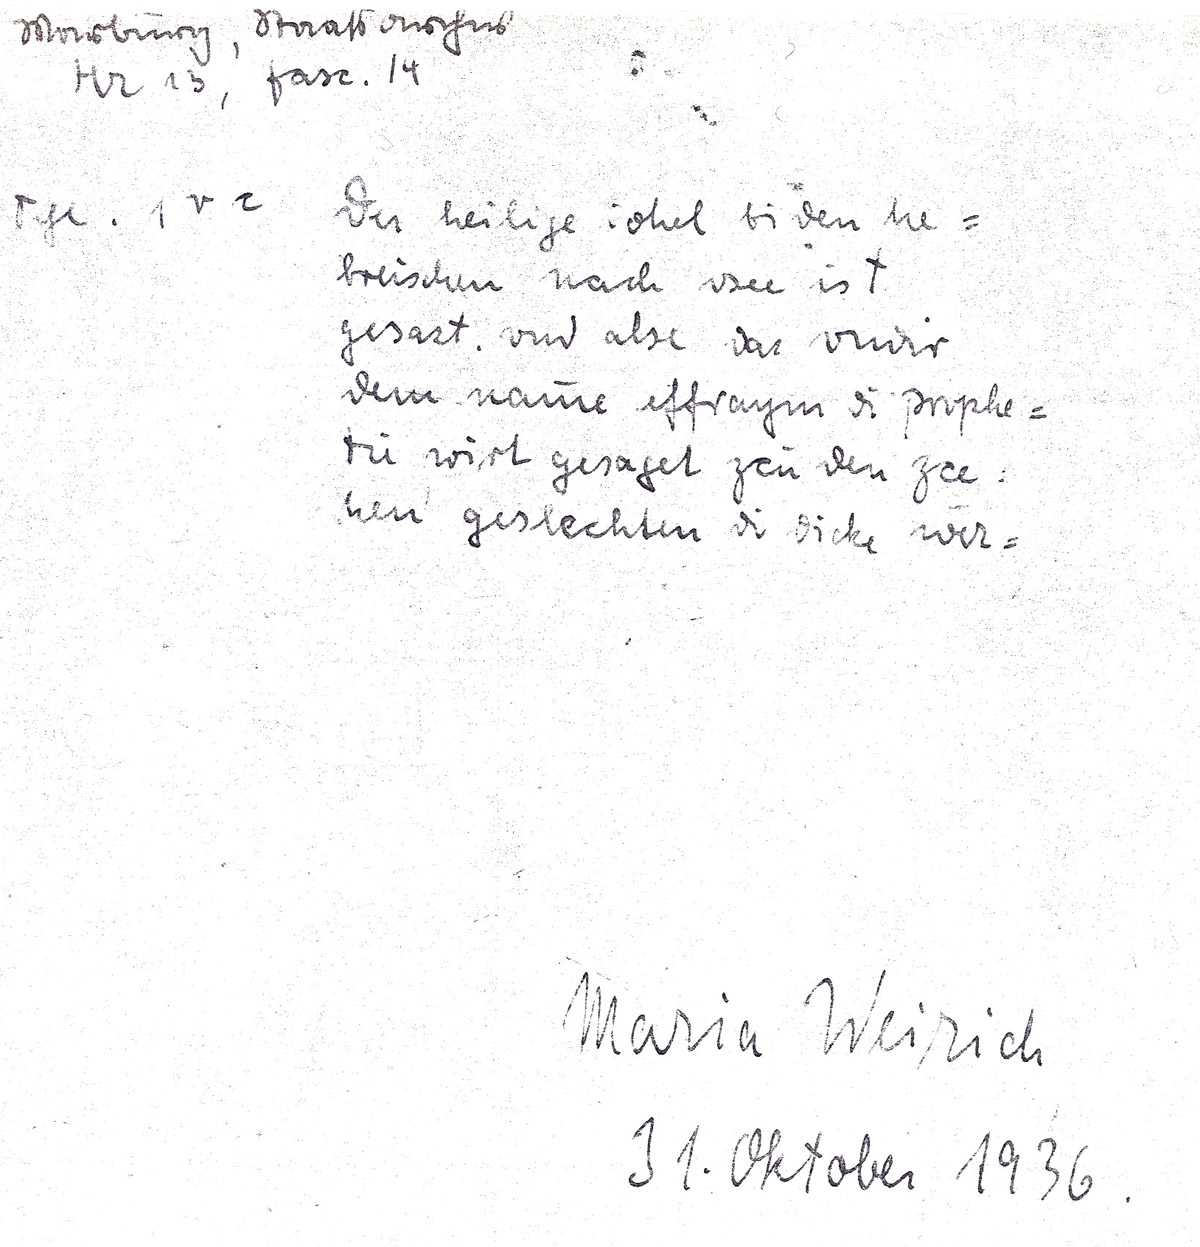 Marburg, Staatsarchiv
Hr 13, fasc. 14
Tge. 1 v c
Der heilige iohel bi den he=
breischen nach osee ist
gesazt. vnd alse daz vndir
dem name effraym di prophe=
tii wirt gesaget zcu den zce=
hen geslechten di dicke wer=
Maria Weirich
31. Oktober 1936.